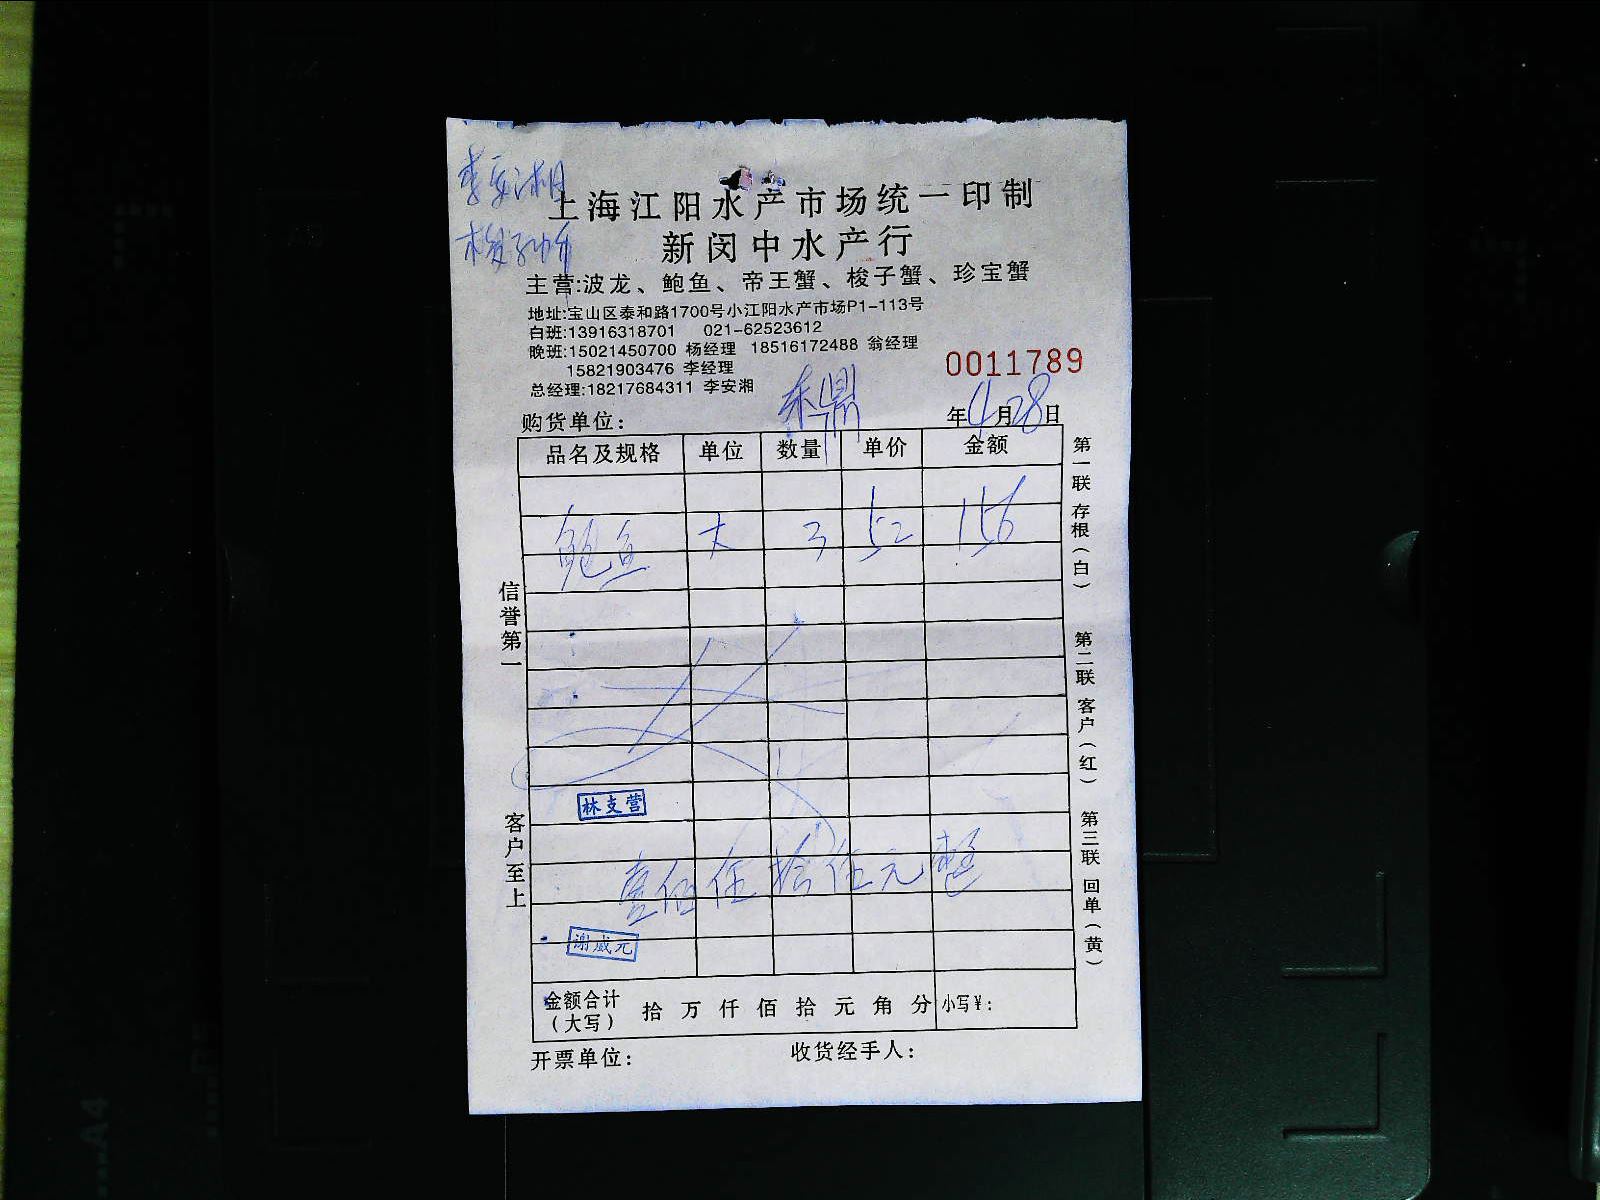 李安湘
梭子蟹
上海江阳水产市场统一印制
新闵中水产行
主营:波龙、鲍鱼、帝王蟹、梭子蟹、珍宝蟹
地址:宝山区泰和路1700号小江阳水产市场P1-113号
白班:13916318701 021-62523612
晚班:15021450700 杨经理 18516172488 翁经理
15821903476 李经理
总经理:18217684311 李安湘
0011789
购货单位: 鼎 年4月28日
品名及规格 单位 数量 单价 金额
鲍鱼 大 3 52 156
林支营
壹佰伍拾伍元整
谢威元
金额合计(大写) 拾 万 仟 佰 拾 元 角 分 小写¥:
开票单位: 收货经手人:
信誉第一
客户至上
第一联 存根(白)
第二联 客户(红)
第三联 回单(黄)
A4